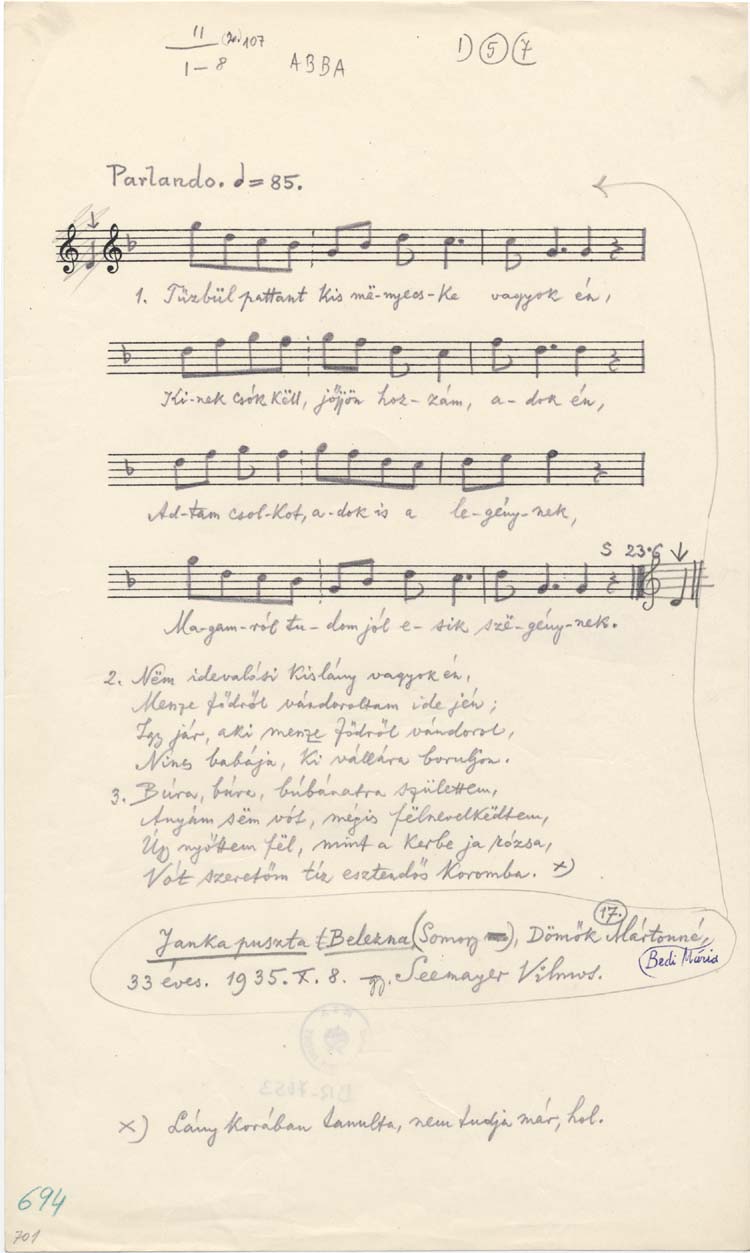 II (20) 107
1–8 ABBA 1) 5 7
Parlando. = 85.
1. Tüzbül pattant kis më-nyecs-ke vagyok én,
Ki-nek csók këll, jöjjön hoz-zám, a-dok én,
Ad-tam csol-kot, a-dok is a le-gény-nek,
S 23·6
Ma-gam-ról tu-dom jól e-sik szë-gény-nek.
2. Nëm idevalósi kislány vagyok én,
Menze födről vándoroltam ide jén;
Így jár, aki menze födről vándorol,
Nincs babája, ki vállára boruljon.
3. Búra, búra, búbánatra születtem,
Anyám sëm vót, mégis fëlnevelkëdtem,
Úgy nyőttem fël, mint a kerbe ja rózsa,
Vót szeretőm tíz esztendős koromba. x)
17.
Janka puszta Belezna (Somogy), Dömők Mártonné,
Bedi Mária
33 éves. 1935. X. 8. gy. Seemayer Vilmos.
BR-7653
x) Lány korában tanulta, nem tudja már, hol.
694
701